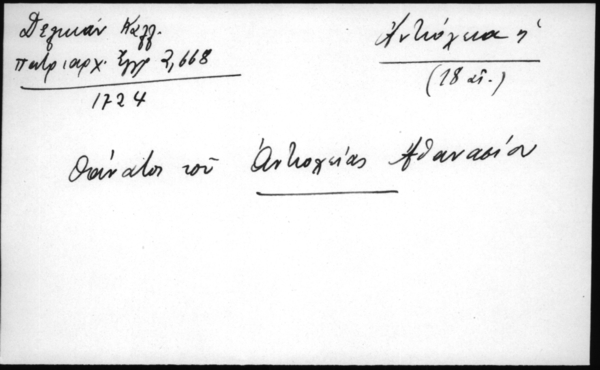 Δελικάν Καλλ.
Πατριαρχ. Ἔγγρ 2,668
1724
Ἀντιόχεια ἡ
(18 αἰ.)
θάνατος τοῦ Ἀντιοχείας Ἀθανασίου